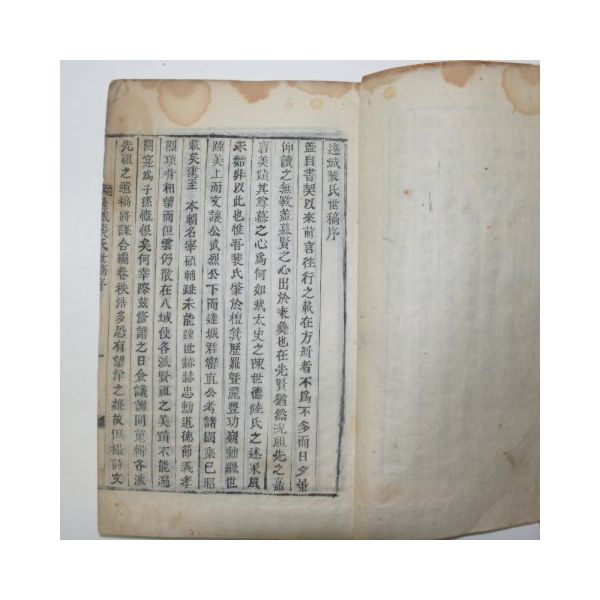 達城裴氏世稿序
盖自書契以來前言往行之載在方冊者不爲不多而日夕㬥
仰讀之無斁盖慕賢之心出於秉彛也在先賢猶然況祖先之嘉
言美蹟其尊慕之心爲何如哉太史之陳世德陸氏之述采風
未始非以此也惟吾裴氏肇於檀箕歷羅曁麗豐功巍勳繼世
踵美上而文讓公武烈公下而達城君密直公考諸國乘已昭
載矣逮至 本朝名宰碩輔雖未能踵世赫赫忠勳道德節義孝
烈項背相望而但雲仍散在八域使各派賢祖之美蹟不能遍
閱寔爲子孫慨恨矣何幸際玆修譜之日僉議詢同蒐輯各派
先祖之遺稿將謀合編卷秩浩多恐有望洋之難故但撮詩文
達城裴氏世稿序